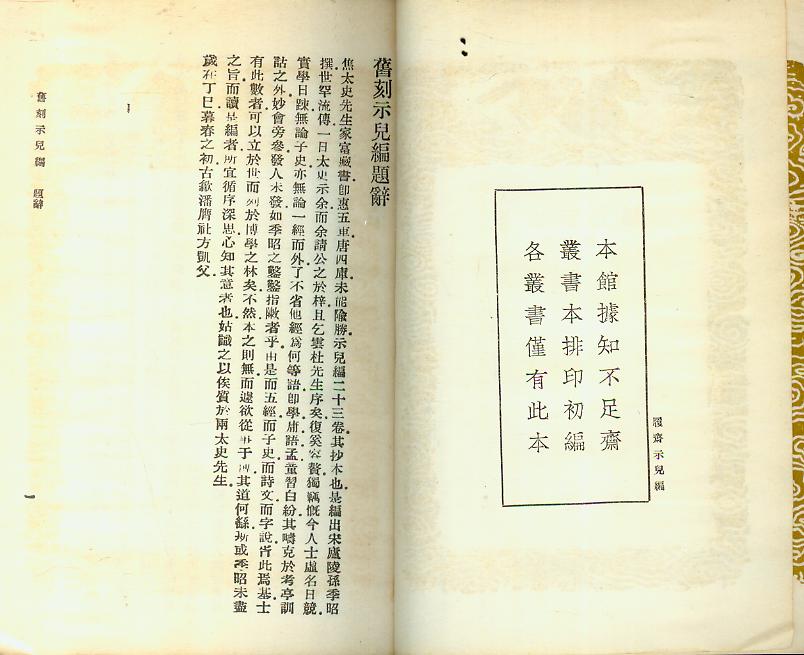 履齋示兒編
本館據知不足齋
叢書本排印初編
各叢書僅有此本
舊刻示兒編題辭
焦太史先生家富藏書卽惠五車唐四庫未能隃勝示兒編二十三卷其抄本也是編出宋廬陵孫季昭
撰世罕流傳一日太史示余而余請公之於梓且乞雲杜先生序矣復奚容贅獨輒慨今人士虛名日競
實學日踈無論子史亦無論一經而外了不省他經爲何等語卽學庸語孟童習白紛其疇克於考亭訓
詁之外妙會旁參發人未發如季昭之鑿鑿指陳者乎由是而五經而子史而詩文而字說胥此焉基士
有此數者可以立於世而列於博學之林矣不然本之則無而遽欲從事于其道何繇斯或季昭未盡
之旨而讀是編者所宜循序深思心知其意者也姑識之以俟質於兩太史先生
歲在丁巳暮春之初古歙潘膺祉方凱父
舊刻示兒編 題辭
一